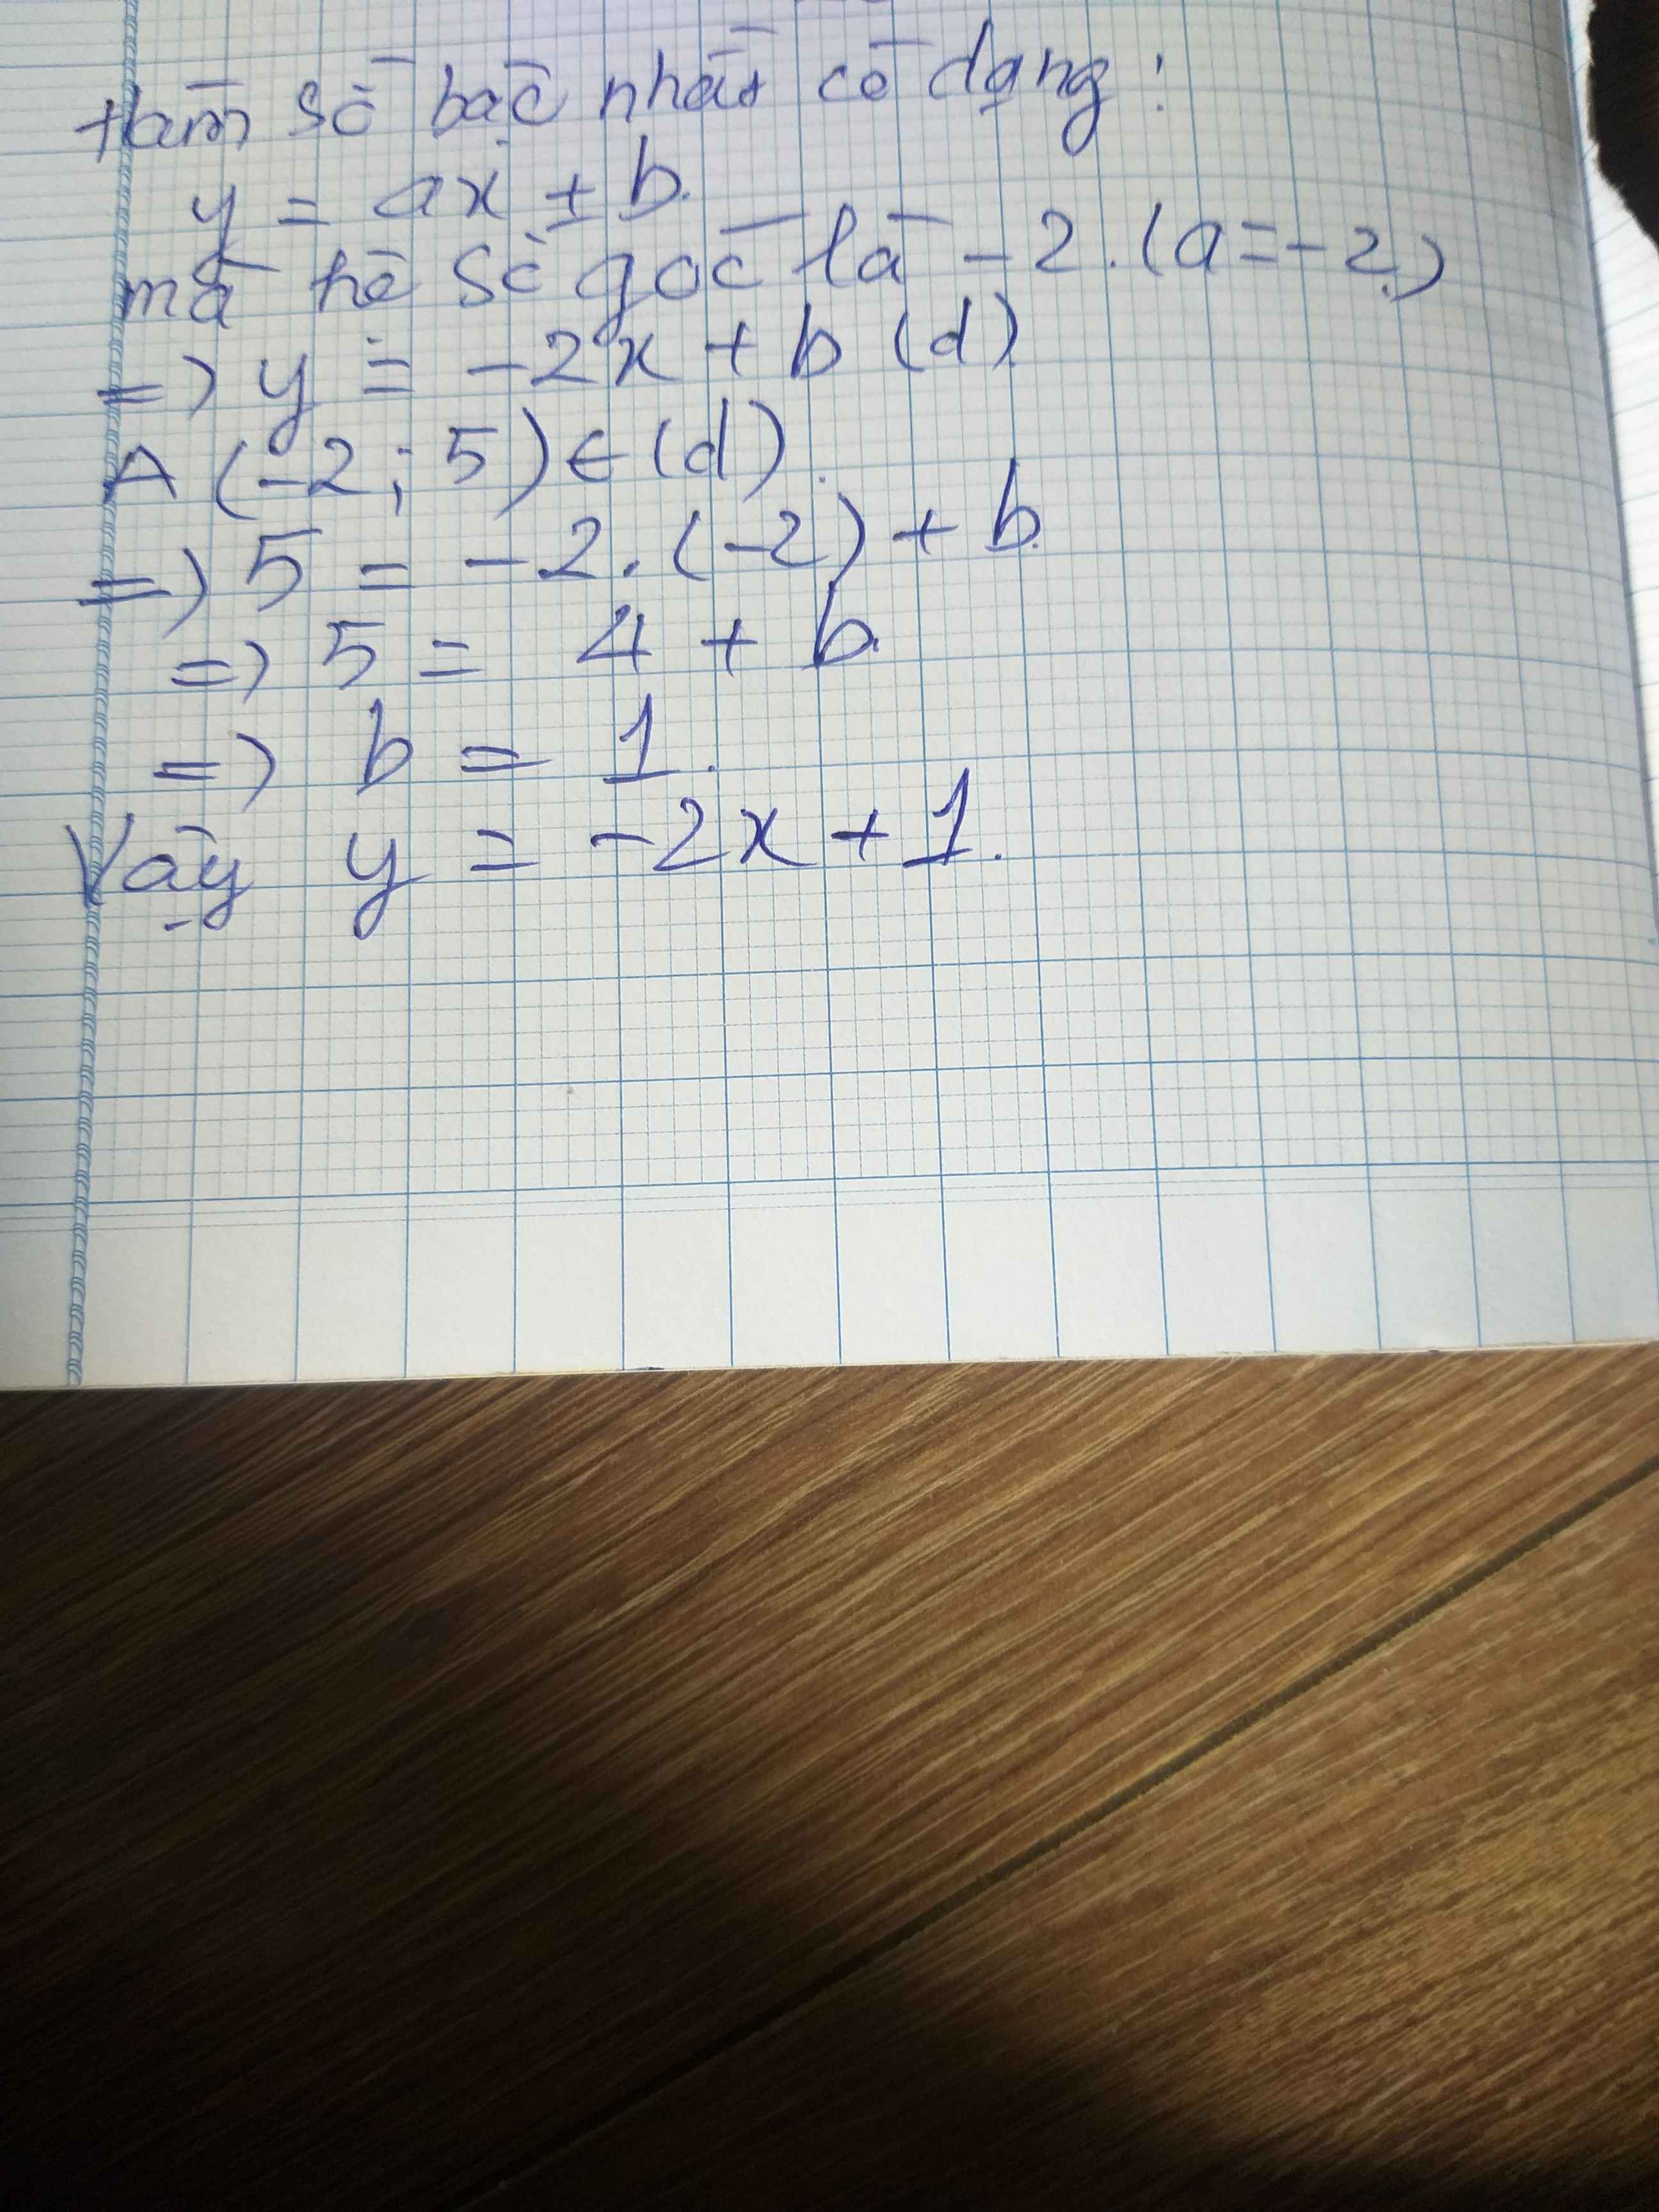 Hàm số bậc nhất có dạng :
y = ax + b.
mà hệ số góc là -2. (a = -2.)
=> y = -2x + b (d)
A (-2 ; 5) ∈ (d).
=> 5 = -2. (-2) + b.
=> 5 = 4 + b.
=> b = 1.
Vậy y = -2x + 1.